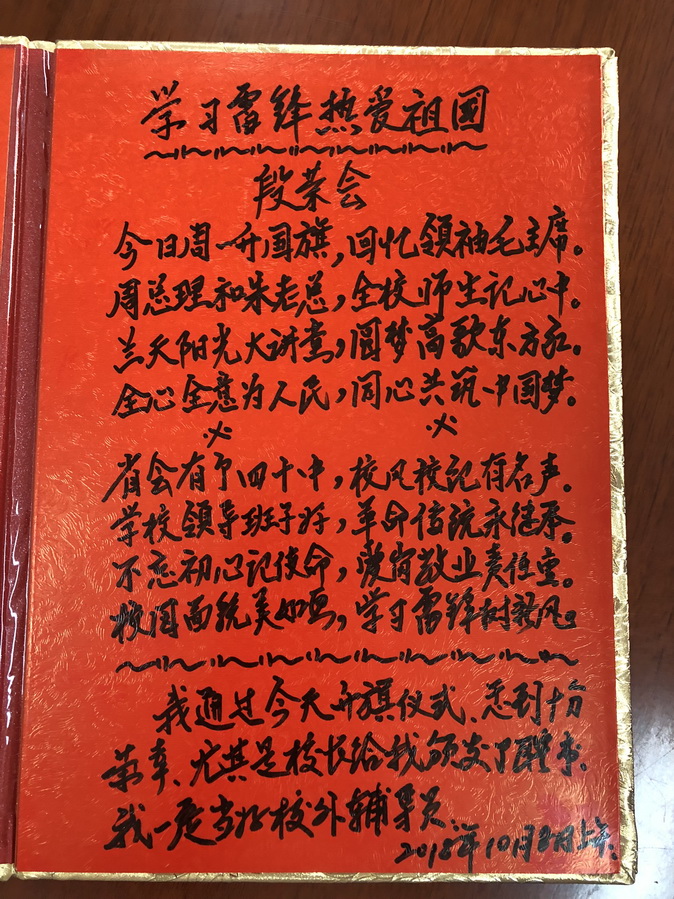 学习雷锋热爱祖国
段荣会
今日周一升国旗,回忆领袖毛主席。
周总理和朱老总,全校师生记心中。
兰天阳光大讲堂,圆梦高歌东方红。
全心全意为人民,同心共筑中国梦。
省会有个四十中,校风校纪有名声。
学校领导班子好,革命传统永继承。
不忘初心记使命,爱岗敬业责任重。
校园面貌美如画,学习雷锋树新风。
我通过今天升旗仪式、感到十分
荣幸、尤其是校长给我颁发了聘书、
我一定当好校外辅导员、
2018年10月8日上午.